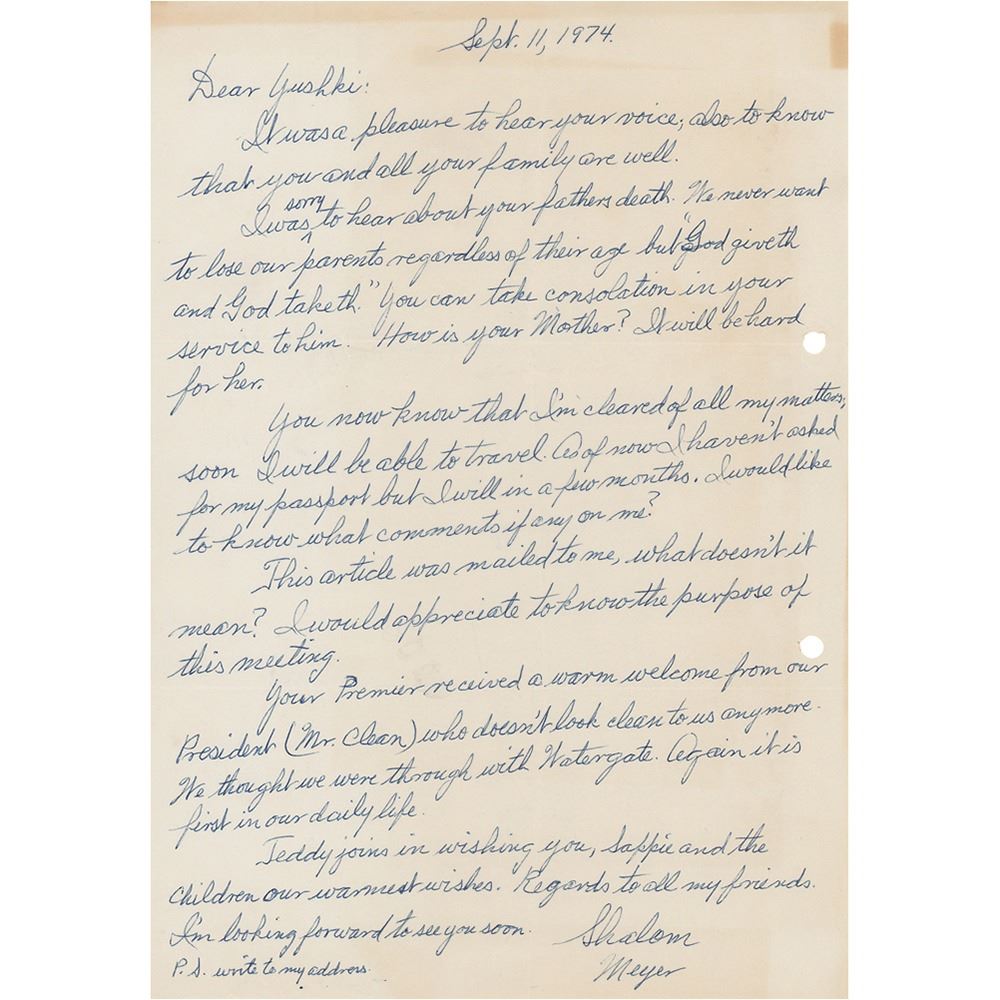 Sept. 11, 1974.
Dear Yushki:
It was a pleasure to hear your voice; also to know
that you and all your family are well.
I was sorry to hear about your fathers death. We never want
to lose our parents regardless of their age but "God giveth
and God taketh." You can take consolation in your
service to him. How is your Mother? It will be hard
for her.
You now know that I'm cleared of all my matters,
soon I will be able to travel. As of now I haven't asked
for my passport but I will in a few months. I would like
to know what comments if any on me?
This article was mailed to me, what doesn't it
mean? I would appreciate to know the purpose of
this meeting.
Your Premier received a warm welcome from our
President (Mr. Clean) who doesn't look clean to us anymore.
We thought we were through with Watergate. Again it is
first in our daily life.
Teddy joins in wishing you, Sappie and the
children our warmest wishes. Regards to all my friends.
I'm looking forward to see you soon. Shalom
P.S. write to my address. Meyer